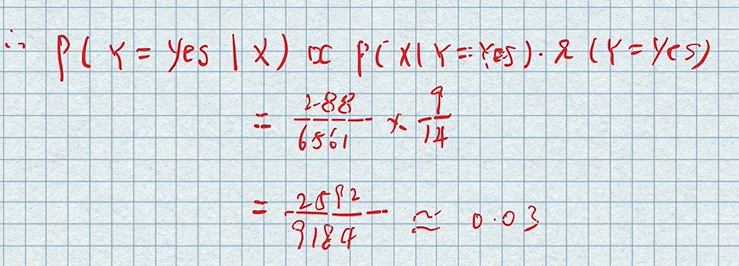 ∴ P(Y = Yes | X) ∝ P(X|Y=Yes) · P(Y=Yes)
= 288/6561 × 9/14
= 2592/9184 ≃ 0.03